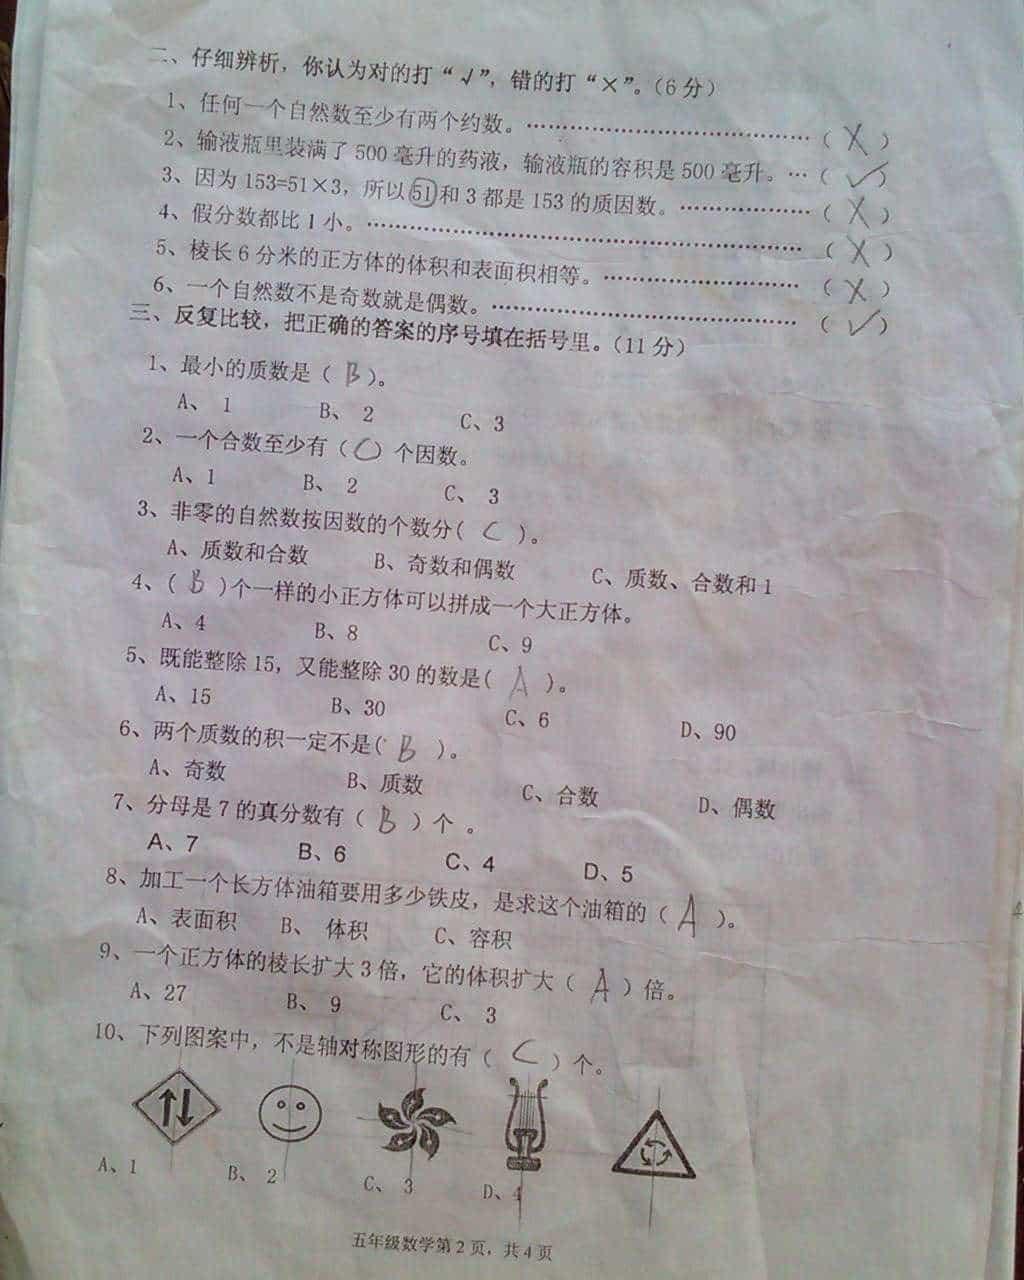 二、仔细辨析，你认为对的打“√”，错的打“×”。（6分）
1、任何一个自然数至少有两个约数。……………………………（ X ）
2、输液瓶里装满了500毫升的药液，输液瓶的容积是500毫升。…（ ✓ ）
3、因为153=51×3，所以51和3都是153的质因数。………………（ X ）
4、假分数都比1小。………………………………………………（ X ）
5、棱长6分米的正方体的体积和表面积相等。……………………（ X ）
6、一个自然数不是奇数就是偶数。………………………………（ ✓ ）
三、反复比较，把正确的答案的序号填在括号里。（11分）
1、最小的质数是（ B ）。
A、 1 B、 2 C、3
2、一个合数至少有（ C ）个因数。
A、1 B、 2 C、 3
3、非零的自然数按因数的个数分( C )。
A、质数和合数 B、奇数和偶数 C、质数、合数和1
4、( B )个一样的小正方体可以拼成一个大正方体。
A、4 B、8 C、9
5、既能整除15，又能整除30的数是( A )。
A、15 B、30 C、6 D、90
6、两个质数的积一定不是( B )。
A、奇数 B、质数 C、合数 D、偶数
7、分母是7的真分数有（ B ）个 。
A、7 B、6 C、4 D、5
8、加工一个长方体油箱要用多少铁皮，是求这个油箱的（ A ）。
A、表面积 B、 体积 C、容积
9、一个正方体的棱长扩大3倍，它的体积扩大（ A ）倍。
A、27 B、 9 C、 3
10、下列图案中，不是轴对称图形的有（ C ）个。
A、1 B、 2 C、 3 D、4
五年级数学第2页，共4页